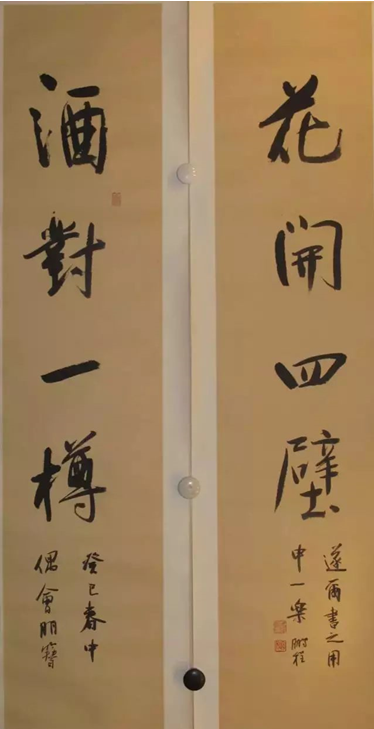 花開四壁
遂爾書之用
申一樂 鵬程
酒對一樽
癸巳春中
偶會朋簪